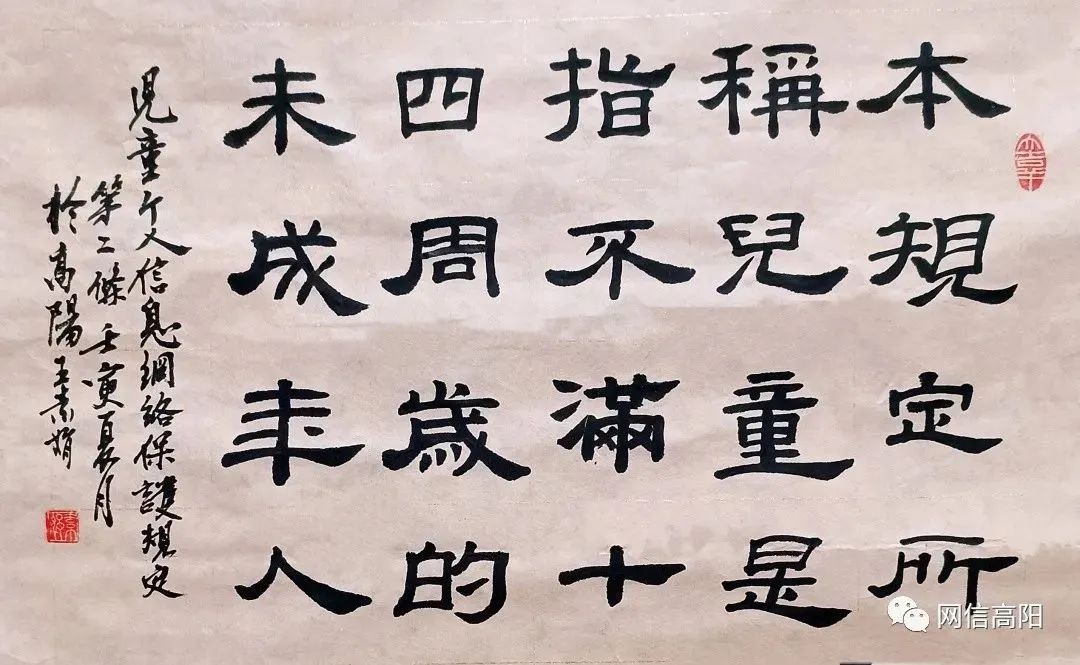 本規定所
稱兒童是
指不滿十
四周歲的
未成年人
児童个人信息網絡保護規定
第二條 壬寅夏月
於高陽王素娟
网信高阳